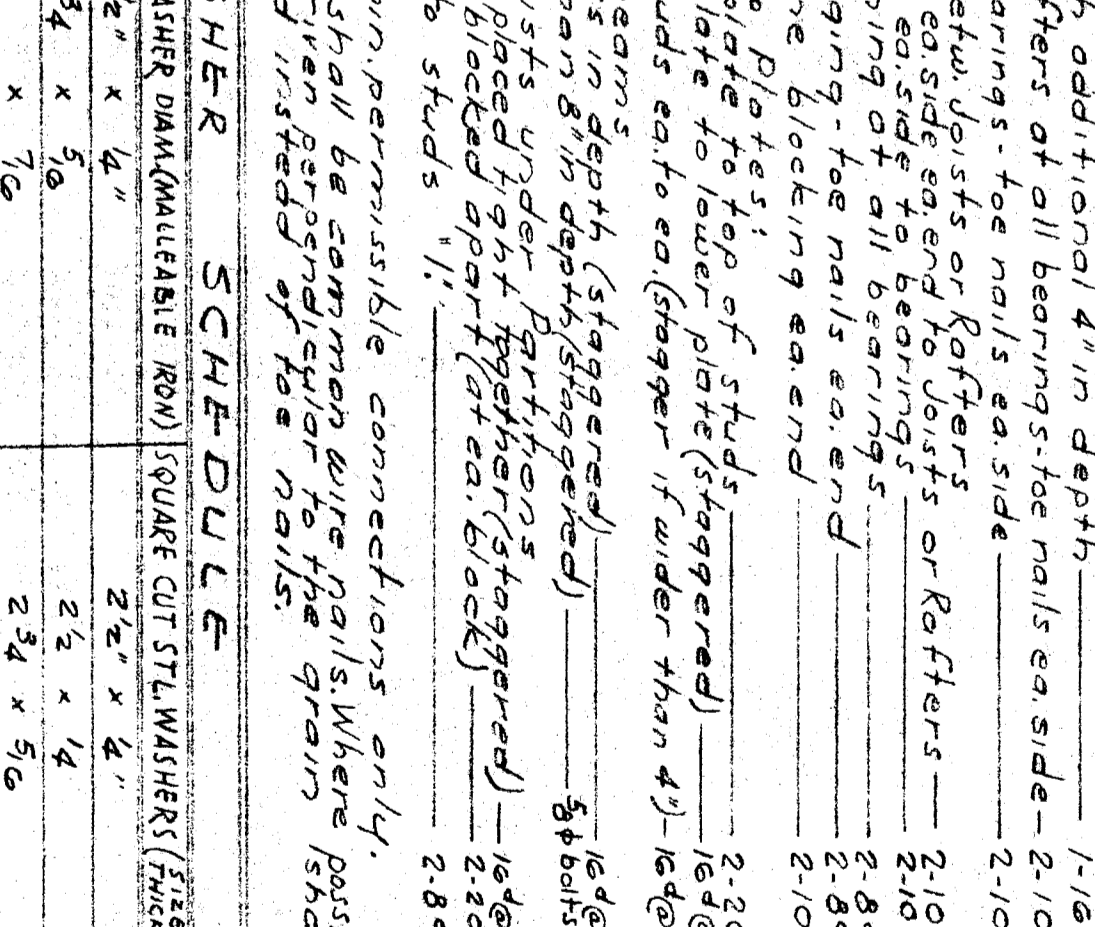 h additional 4" in depth — 1-16
fters at all bearings-toe nails ea. side — 2-10
arings-toe nails ea. side — 2-10
etw. Joists or Rafters
ea. side ea. end to Joists or Rafters — 2-10
ea. side to bearings — 2-10
ing at all bearings — 2-8
ging-toe nails ea. end — 2-8
ne blocking ea. end — 2-10
plates:
plate to top of studs — 2-20
late to lower plate (staggered) — 16d@
uds ea. to ea. (stagger if wider than 4") — 16d@
eams
s in depth (staggered) — 16d@
han 8" in depth (staggered) — 5/8 φ bolts
ists under Partitions
placed tight together (staggered) — 16d@
blocked apart (at ea. block) — 2-20
to studs "1". — 2-8
in. permissible connections only.
shall be common wire nails. Where poss
riven perpendicular to the grain sha
d insted of toe nails.
SHER SCHEDULE
ASHER DIAM. (MALLEABLE IRON) SQUARE CUT STL. WASHERS (SIZE THICK
1/2" x 1/4" 2 1/2" x 1/4"
3/4 x 5/16 2 1/2 x 1/4
x 7/16 2 3/4 x 5/16